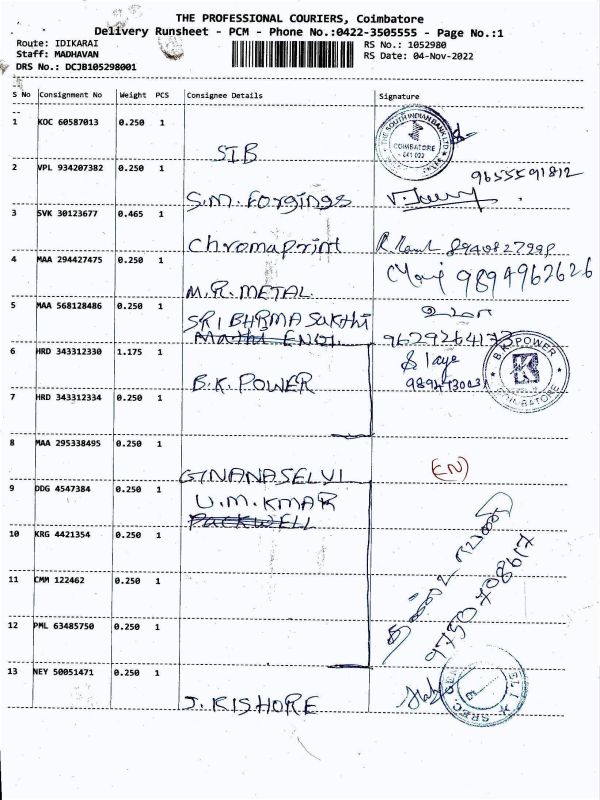 THE PROFESSIONAL COURIERS, Coimbatore
Delivery Runsheet - PCM - Phone No.:0422-3505555 - Page No.:1
Route: IDIKARAI
RS No.: 1052980
Staff: MADHAVAN
RS Date: 04-Nov-2022
DRS No.: DCJB105298001
S No Consignment No Weight PCS Consignee Details Signature
1 KOC 60587013 0.250 1
THE SOUTH INDIAN BANK LTD
COIMBATORE
641 022
SIB
2 VPL 934207382 0.250 1
9655591812
S.M. Forgings
3 SVK 30123677 0.465 1
Chromaprint
4 MAA 294427475 0.250 1
9894962626
M.R. METAL
5 MAA 568128486 0.250 1
SRI BHRMA Sakthi
9629264173
6 HRD 343312330 1.175 1
B.K. POWER
COIMBATORE
B.K. POWER
7 HRD 343312334 0.250 1
8 MAA 295338495 0.250 1
GNANASELVI
(EN)
9 DDG 4547384 0.250 1
U.M. KMAR
PACKWELL
10 KRG 4421354 0.250 1
9750708617
11 CMM 122462 0.250 1
12 PML 63485750 0.250 1
13 NEY 50051471 0.250 1
J. KISHORE